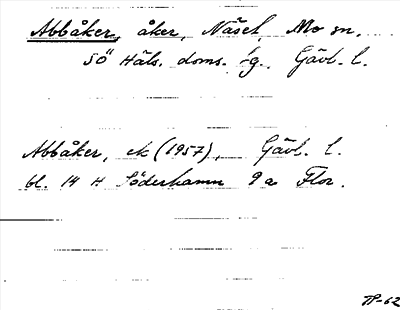 Abbåker, åker, Näset, Mo sn.
Sö Häls. doms. fg. Gävl. l.
Abbåker, ek (1957), Gävl. l.
bl. 14 H Söderhamn 9 a Flor.
TP-62